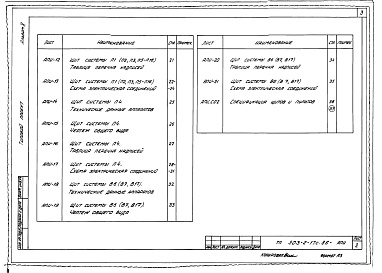 3
Альбом
Типовой проект
Лист Наименование Стр. Примеч.
АПИ-12 Щит системы П1 (П2, П3, П5-П16) 21
Таблица перечня надписей
АПИ-13 Щит системы П1 (П2, П3, П5-П16) 22-
Схема электрическая соединений 24
АПИ-14 Щит системы П4. 25
Технические данные аппаратов
АПИ-15 Щит системы П4. 26
Чертеж общего вида
АПИ-16 Щит системы П4. 27
Таблица перечня надписей
АПИ-17 Щит системы П4. 28-
Схема электрическая соединений 31
АПИ-18 Щит системы В6 (В7, В17). 32
Технические данные аппаратов
АПИ-19 Щит системы В6 (В7, В17). 33
Чертеж общего вида
Лист Наименование Стр. Примеч.
АПИ-20 Щит системы В6 (В7, В17) 34
Таблица перечня надписей
АПИ-21 Щит системы В6 (В7, В17) 35
Схема электрическая соединений
Спецификация щитов и пультов
ТП 503-2-17с.86- АПИ
Лист
2
Копировал
Формат А3